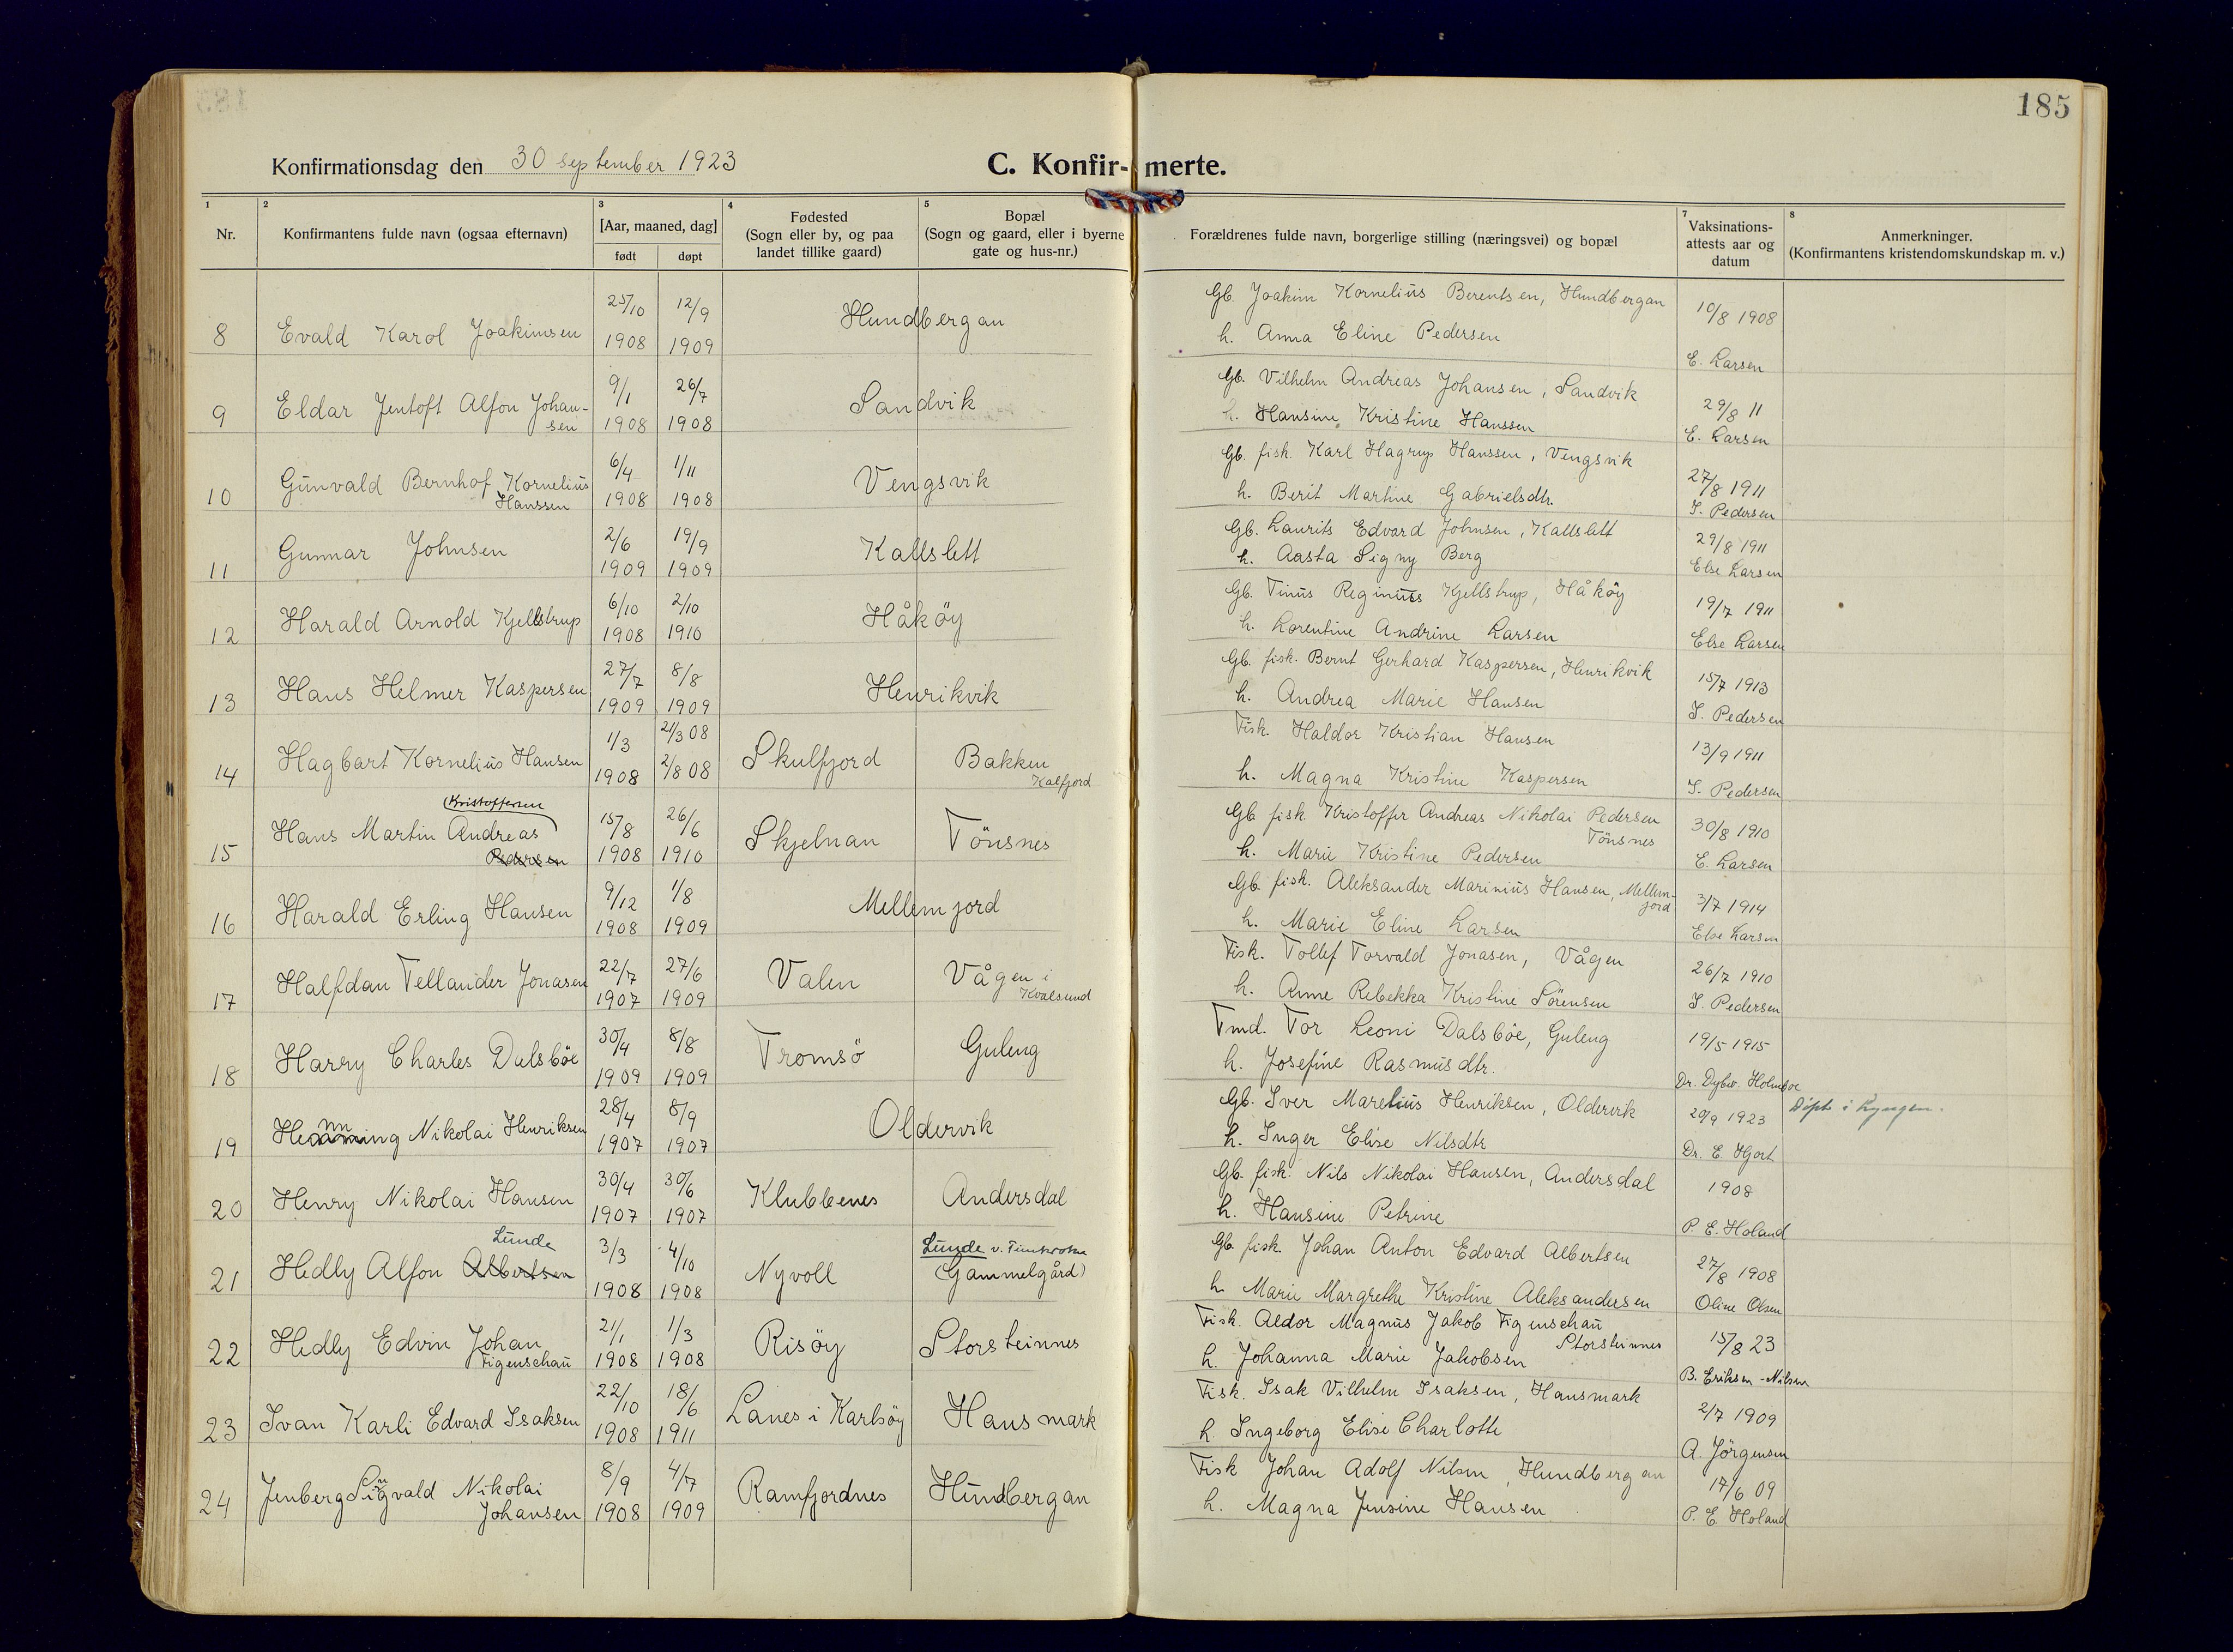 185
Konfirmationsdag den 30 september 1923
C. Konfir- merte.
1 2 3 4 5 7 8
Nr.
Konfirmantens fulde navn (ogsaa efternavn)
[Aar, maaned, dag]
født døpt
Fødested
(Sogn eller by, og paa
landet tillike gaard)
Bopæl
(Sogn og gaard, eller i byerne
gate og hus-nr.)
Forældrenes fulde navn, borgerlige stilling (næringsvei) og bopæl
Vaksinations-
attests aar og
datum
Anmerkninger.
(Konfirmantens kristendomskundskap m. v.)
25/10 12/9 Gb. Joakim Kornelius Berentsen, Hundbergan
8 Evald Karol Joakimsen Hundbergan 10/8 1908
1908 1909 h. Anna Eline Pedersen E. Larsen
9/1 26/7 Gb. Vilhelm Andreas Johansen, Sandvik
9 Eldar Jentoft Alfon Johan- Sandvik 29/8 11
sen 1908 1908 h. Hansine Kristine Hanssen E. Larsen
6/4 1/11 Gb. fisk. Karl Hagrup Hanssen, Vengsvik
10 Gunvald Bernhof Kornelius Vengsvik 27/8 1911
Hanssen 1908 1908 h. Berit Martine Gabrielsdtr. I. Pedersen
2/6 19/9 Gb. Laurits Edvard Johnsen, Kallslett
11 Gunnar Johnsen Kallslett 29/8 1911
1909 1909 h. Aasta Signy Berg Else Larsen
6/10 2/10 Gb. Tinus Reginius Kjellstrup, Håköy
12 Harald Arnold Kjellstrup Håköy 19/7 1911
1908 1910 h. Lorentine Andrine Larsen Else Larsen
27/7 8/8 Gb. fisk. Bernt Gerhard Kaspersen, Henrikvik
13 Hans Helmer Kaspersen Henrikvik 15/7 1913
1909 1909 h. Andrea Marie Hansen I. Pedersen
1/3 21/3 08 Fisk. Haldor Kristian Hansen
14 Hagbart Kornelius Hansen Skulfjord Bakken 13/9 1911
1908 2/8 08 Kalfjord h. Magna Kristine Kaspersen I. Pedersen
(Kristoffersen
15/8 26/6 Gb fisk Kristoffer Andreas Nikolai Pedersen
15 Hans Martin Andreas Skjelnan Tönsnes Tönsnes 30/8 1910
Pedersen 1908 1910 h. Marie Kristine Pedersen E. Larsen
9/12 1/8 Gb. fisk. Aleksander Marinius Hansen, Mellem-
jord
16 Harald Erling Hansen Mellemjord 3/7 1914
1908 1909 h. Marie Eline Larsen Else Larsen
22/7 27/6 Fisk. Tollef Torvald Jonasen, Vågen
17 Halfdan Tellander Jonasen Valen Vågen i 26/7 1910
1907 1909 Kvalsund h. Anne Rebekka Kristine Sörensen I. Pedersen
30/4 8/8 Tmd. Tor Leoni Dalsböe, Guleng
18 Harry Charles Dalsböe Tromsö Guleng 19/5 1915
1909 1909 h. Josefine Rasmusdtr. Dr. Dybw. Holmboe
28/4 8/9 Gb. Iver Marelius Henriksen, Oldervik
19 Henning Nikolai Henriksen Oldervik 20/9 1923 Döpt i Lyngen.
1907 1907 h. Inger Elise Nilsdtr Dr. E. Hjort
30/4 30/6 Gb. fisk. Nils Nikolai Hansen, Andersdal
20 Henry Nikolai Hansen Klubbenes Andersdal 1908
1907 1907 h. Hansine Petrine P. E. Holand
Lunde 3/3 4/10 Lunde v. Gb. fisk. Johan Anton Edvard Albertsen
21 Hedly Alfon Albertsen Nyvoll (Gammelgård) 27/8 1908
1908 1908 h. Marie Margrethe Kristine Aleksandersen Oline Olsen
21/1 1/3 Fisk. Aldor Magnus Jakob Figenschau
22 Hedly Edvin Johan Risöy Storsteinnes Storsteinnes 15/8 23
Figenschau 1908 1908 h. Johanna Marie Jakobsen B. Eriksen-Nilsen
22/10 18/6 Fisk. Isak Vilhelm Isaksen, Hansmark
23 Ivan Karli Edvard Isaksen Lanes i Karlsöy Hansmark 2/7 1909
1908 1911 h. Ingeborg Elise Charlotte A. Jörgensen
8/9 4/7 Fisk Johan Adolf Nilsen, Hundbergan
24 Jenberg Sigvald Nikolai Ramfjordnes Hundbergan 17/6 09
Johansen 1908 1909 h. Magna Jensine Hansen P. E. Holand